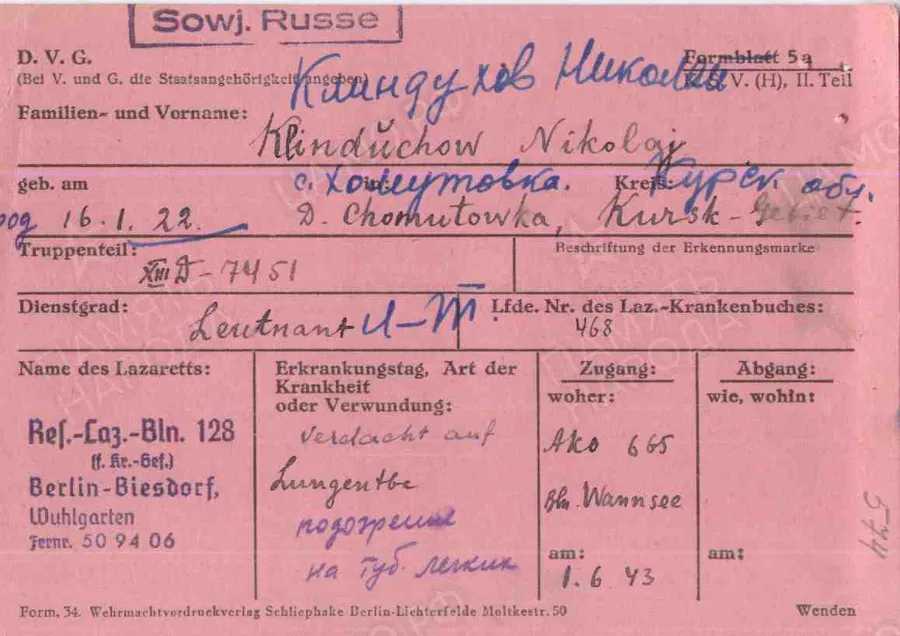 Sowj. Russe
D. V. G.
(Bei V. und G. die Staatsangehörigkeit angeben)
Formblatt 5a
V. (H), II. Teil
Клиндухов Николай
Familien- und Vorname:
Klindŭchow Nikolaj
geb. am
in:
Kreis:
с. Хомутовка. Курск. обл.
род 16. 1. 22.
D. Chomutowka, Kursk-Gebiet.
Truppenteil:
Beschriftung der Erkennungsmarke
XIII D - 7451
Dienstgrad:
Lfde. Nr. des Laz.-Krankenbuches:
Leutnant Л-Т
468
Name des Lazaretts:
Erkrankungstag, Art der
Krankheit
oder Verwundung:
Zugang:
woher:
Abgang:
wie, wohin:
Res.-Laz.-Bln. 128
(f. Kr.-Gef.)
Berlin-Biesdorf,
Wuhlgarten
Fernr. 50 94 06
Verdacht auf
Lungentbc
подозрение
на туб. легких
Ako 665
Bln. Wannsee
am:
1. 6 43
am:
Form. 34. Wehrmachtvordruckverlag Schliephake Berlin-Lichterfelde Moltkestr. 50
Wenden